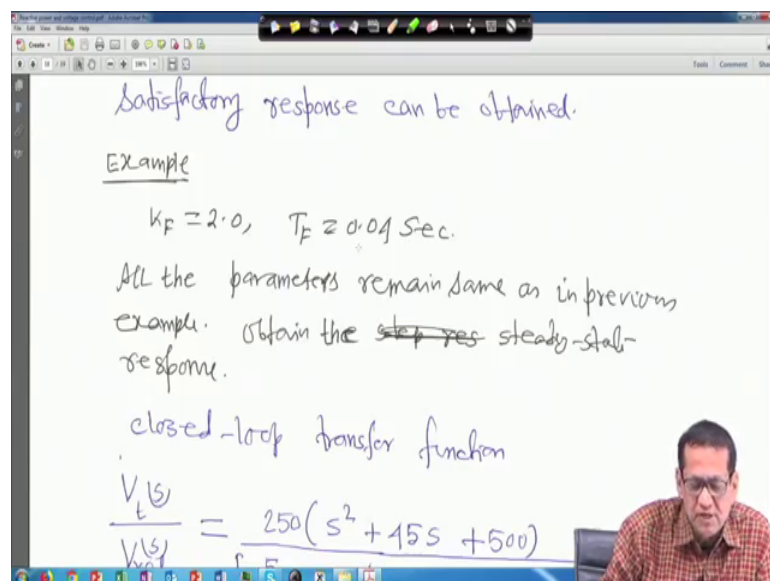 Reactive power and voltage control.pdf - Adobe Acrobat Pro
File Edit View Window Help
Create
Tools Comment Share
Satisfactory response can be obtained.
Example
K_F = 2.0, T_F = 0.04 sec.
All the parameters remain same as in previous
example. Obtain the step res steady-stat-
response.
closed-loop transfer function
V_t(s) = 250(s² + 45s + 500)